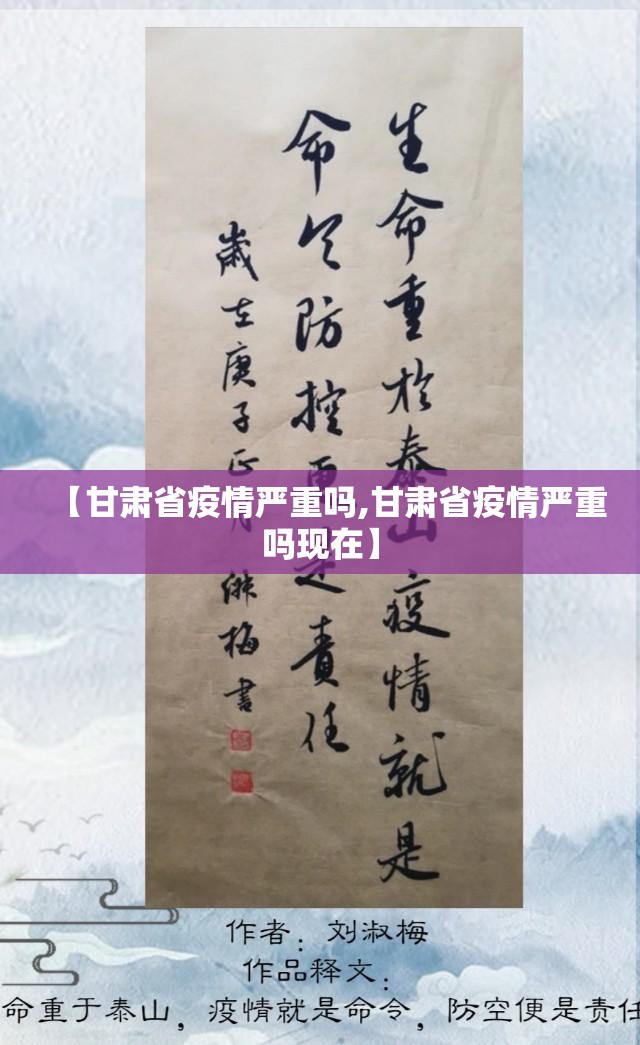 生命重於泰山疫情就是
命令防控是責任
歲在庚子正月淑梅書
【甘肃省疫情严重吗,甘肃省疫情严重
吗现在】
作者：刘淑梅
作品释文：
命重于泰山，疫情就是命令，防空便是责任